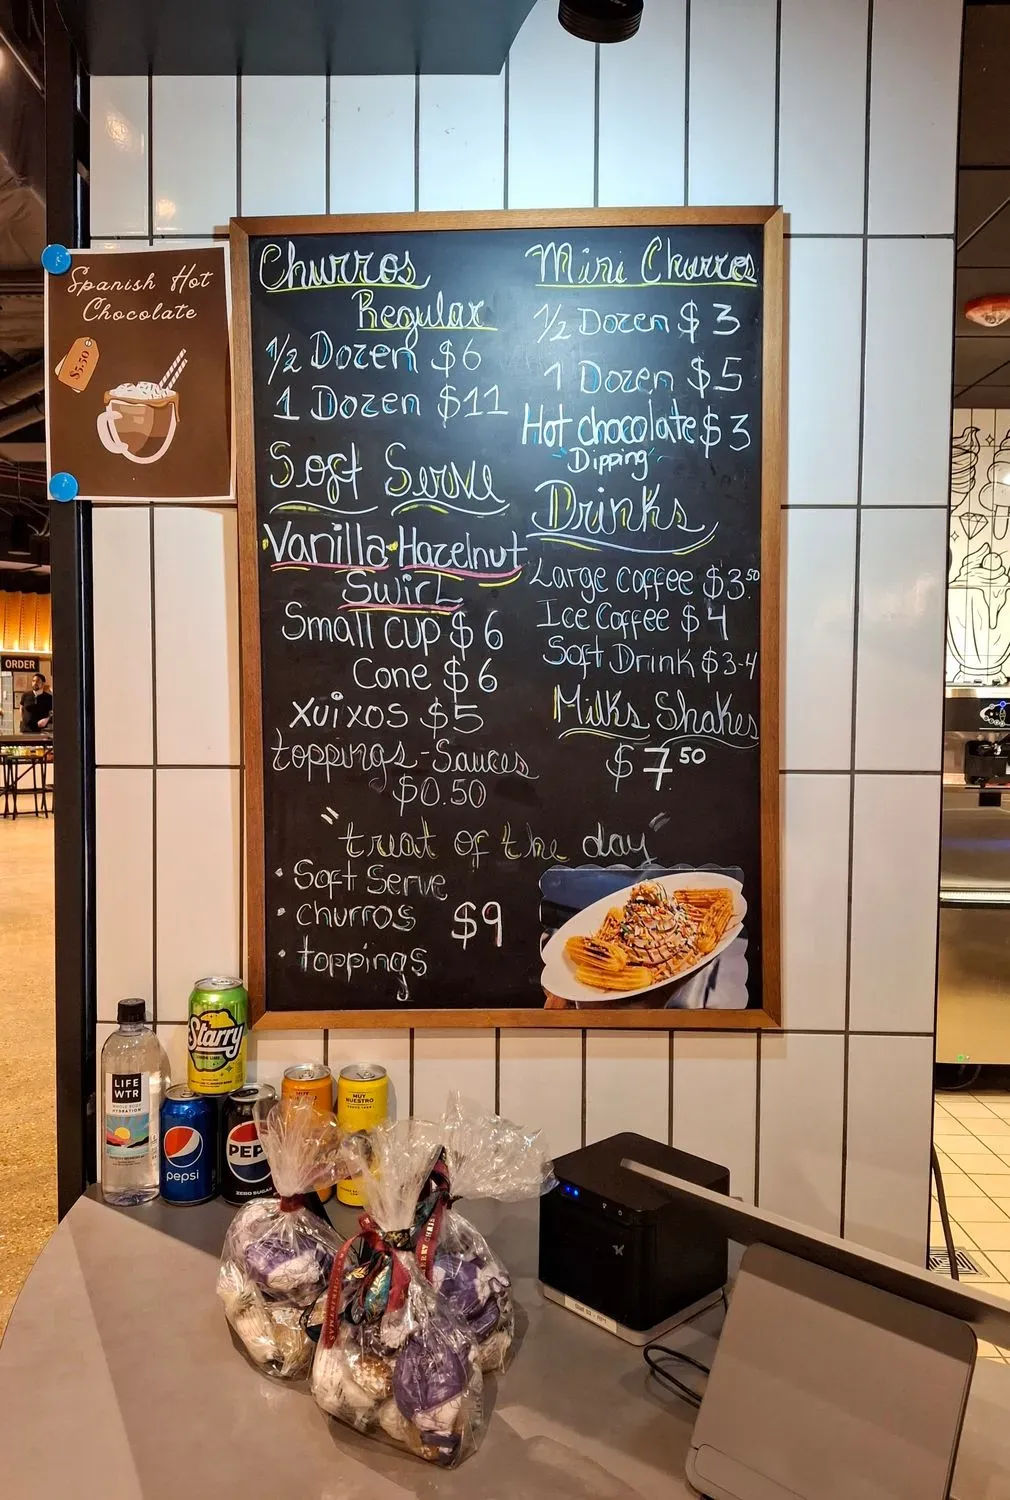 Spanish Hot
Chocolate
$5.50
Churros
Regular
1/2 Dozen $6
1 Dozen $11
Soft Serve
Vanilla•Hazelnut
Swirl
Small cup $6
Cone $6
xuixos $5
toppings-Sauces
$0.50
Mini Churros
1/2 Dozen $3
1 Dozen $5
Hot chocolate $3
Dipping
Drinks
Large coffee $3.50
Ice Coffee $4
Soft Drink $3-4
Milks Shakes
$7 50
"treat of the day"
• Soft Serve
• churros $9
• toppings
ORDER
LIFE
WTR
HYDRATION
Starry
pepsi
PEP
ZERO SUGAR
MUY
NUESTRO